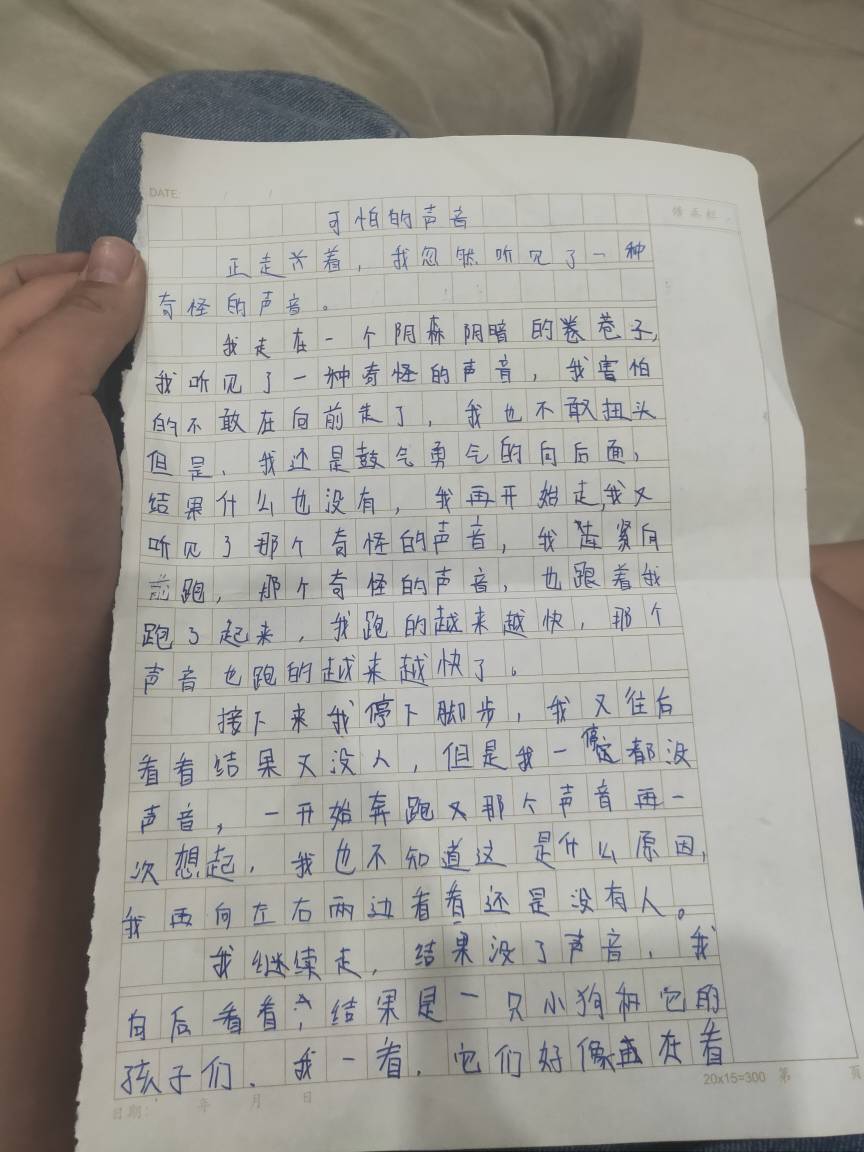 DATE: / /
修正栏
可怕的声音
正走着，我忽然听见了一种
奇怪的声音。
我走在一个阴森阴暗的卷巷子，
我听见了一种奇怪的声音，我害怕
的不敢在向前走了，我也不敢扭头
但是、我还是鼓气勇气的向后面，
结果什么也没有，我再开始走，我又
听见了那个奇怪的声音，我 紧向
前跑，那个奇怪的声音，也跟着我
跑了起来，我跑的越来越快，那个
声音也跑的越来越快了。
接下来我停下脚步，我又往后
看看结果又没人，但是我一停 都没
声音，一开始奔跑又那个声音再一
次想起，我也不知道这是什么原因，
我再向左右两边看看还是没有人。
我继续走，结果没了声音，我
向后看看，结果是一只小狗和它的
孩子们、我一看，它们好像 在看
20x15=300 第 页
日期: 年 月 日